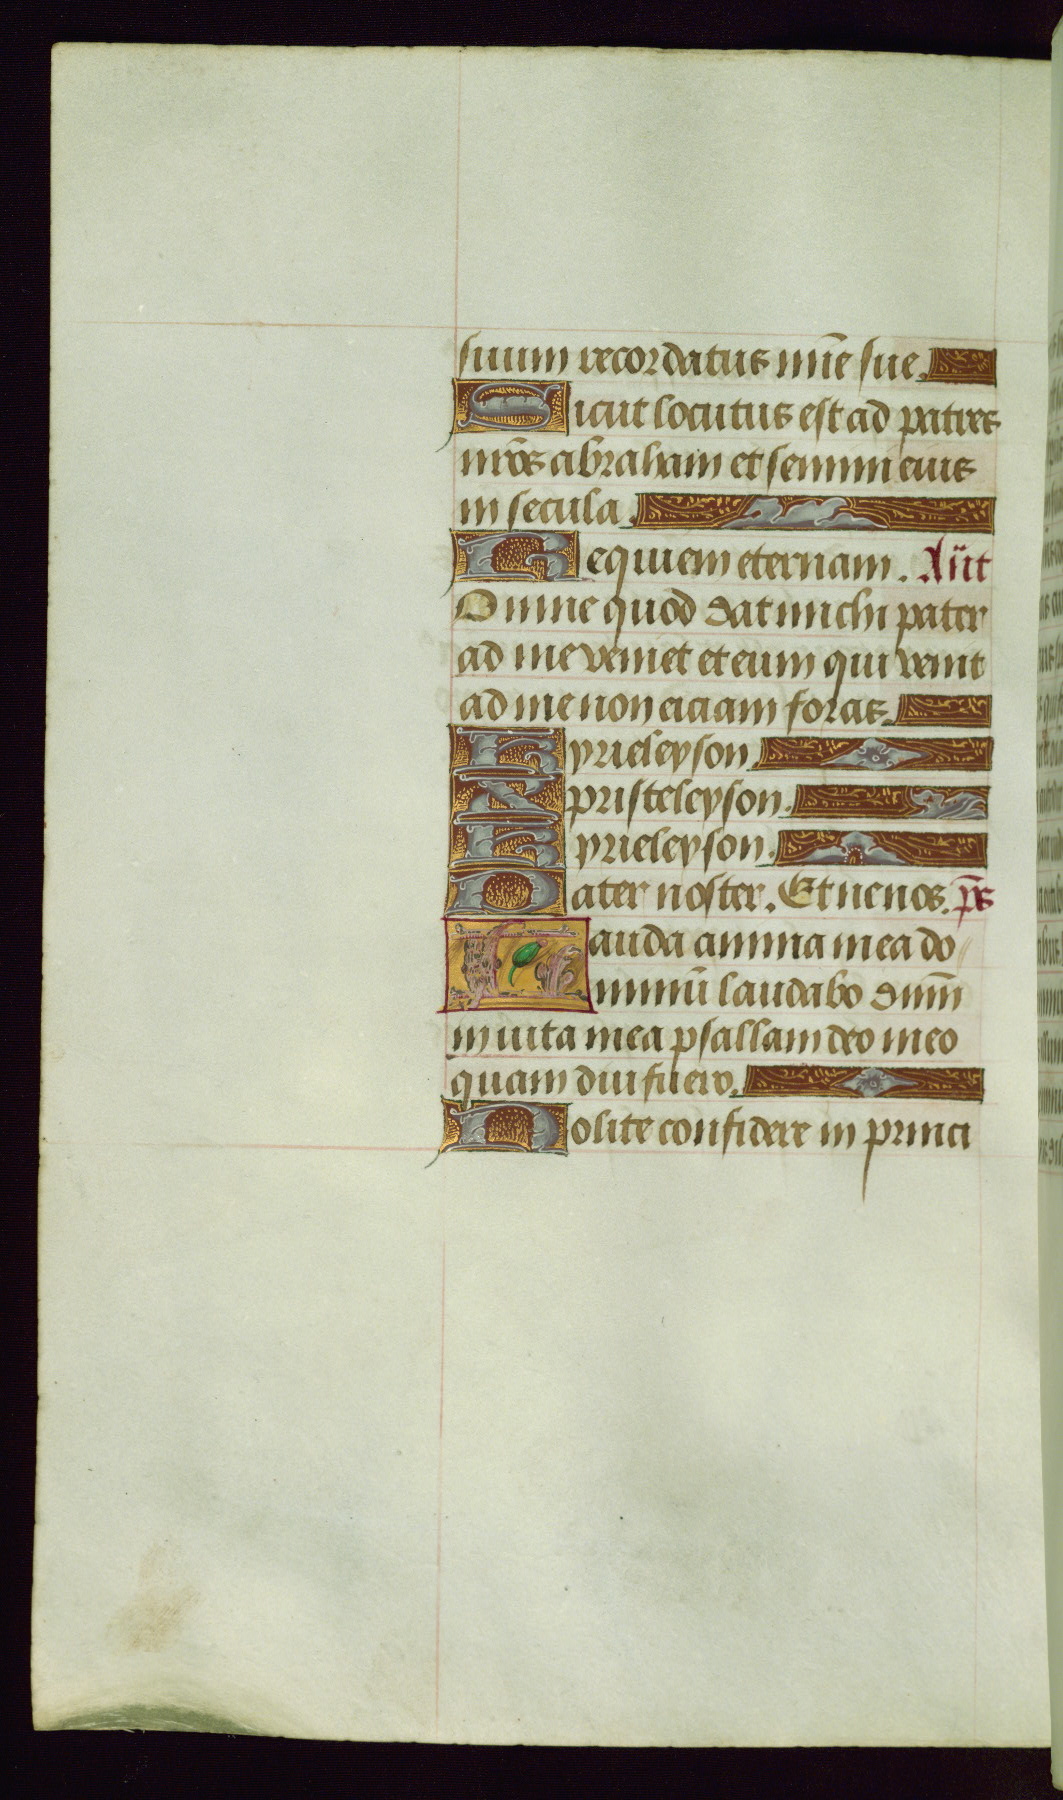 suum recordatus mīe sue.
Sicut locutus est ad patres
nr̄os abraham et semini eius
in secula.
Requiem eternam. Añt
Omne quod dat michi pater
ad me veniet et eum qui venit
ad me non eiciam foras.
Kyrieleyson.
Xpristeleyson.
Kyrieleyson.
Pater noster. Et ne nos. p̄s
Lauda anima mea do
minū laudabo dn̄m
in uita mea psallam deo meo
quam diu fuero.
Nolite confidere in princi